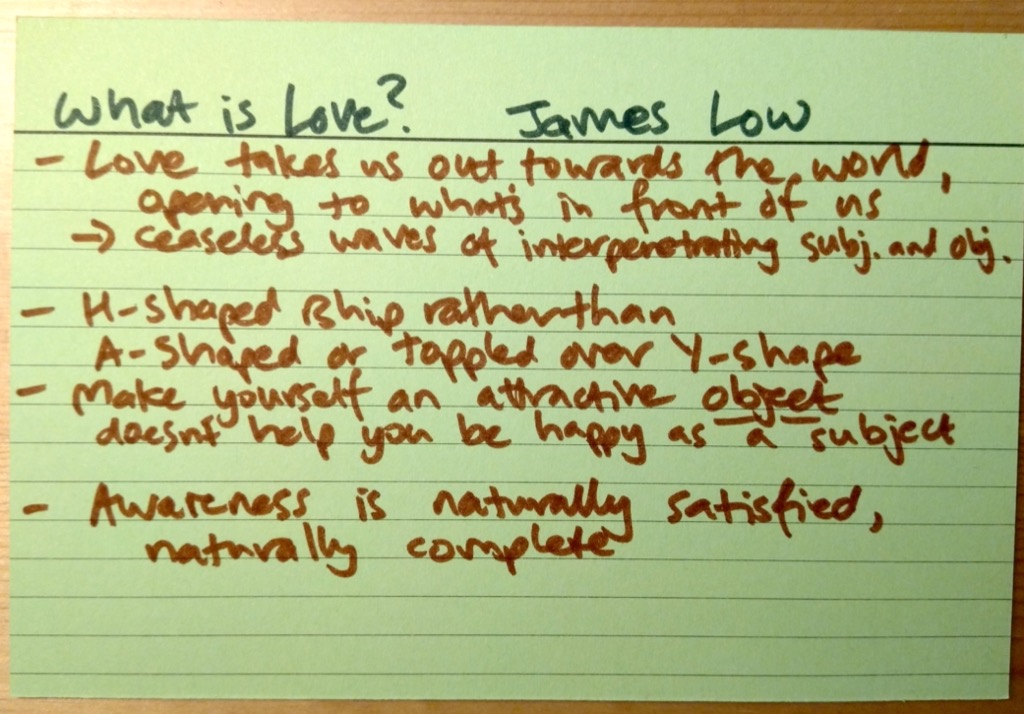 What is Love? James Low
- Love takes us out towards the world,
opening to what's in front of us
→ ceaseless waves of interpenetrating subj. and obj.
- H-shaped Rship rather than
A-shaped or toppled over Y-shape
- Make yourself an attractive object
doesn't help you be happy as a subject
- Awareness is naturally satisfied,
naturally complete